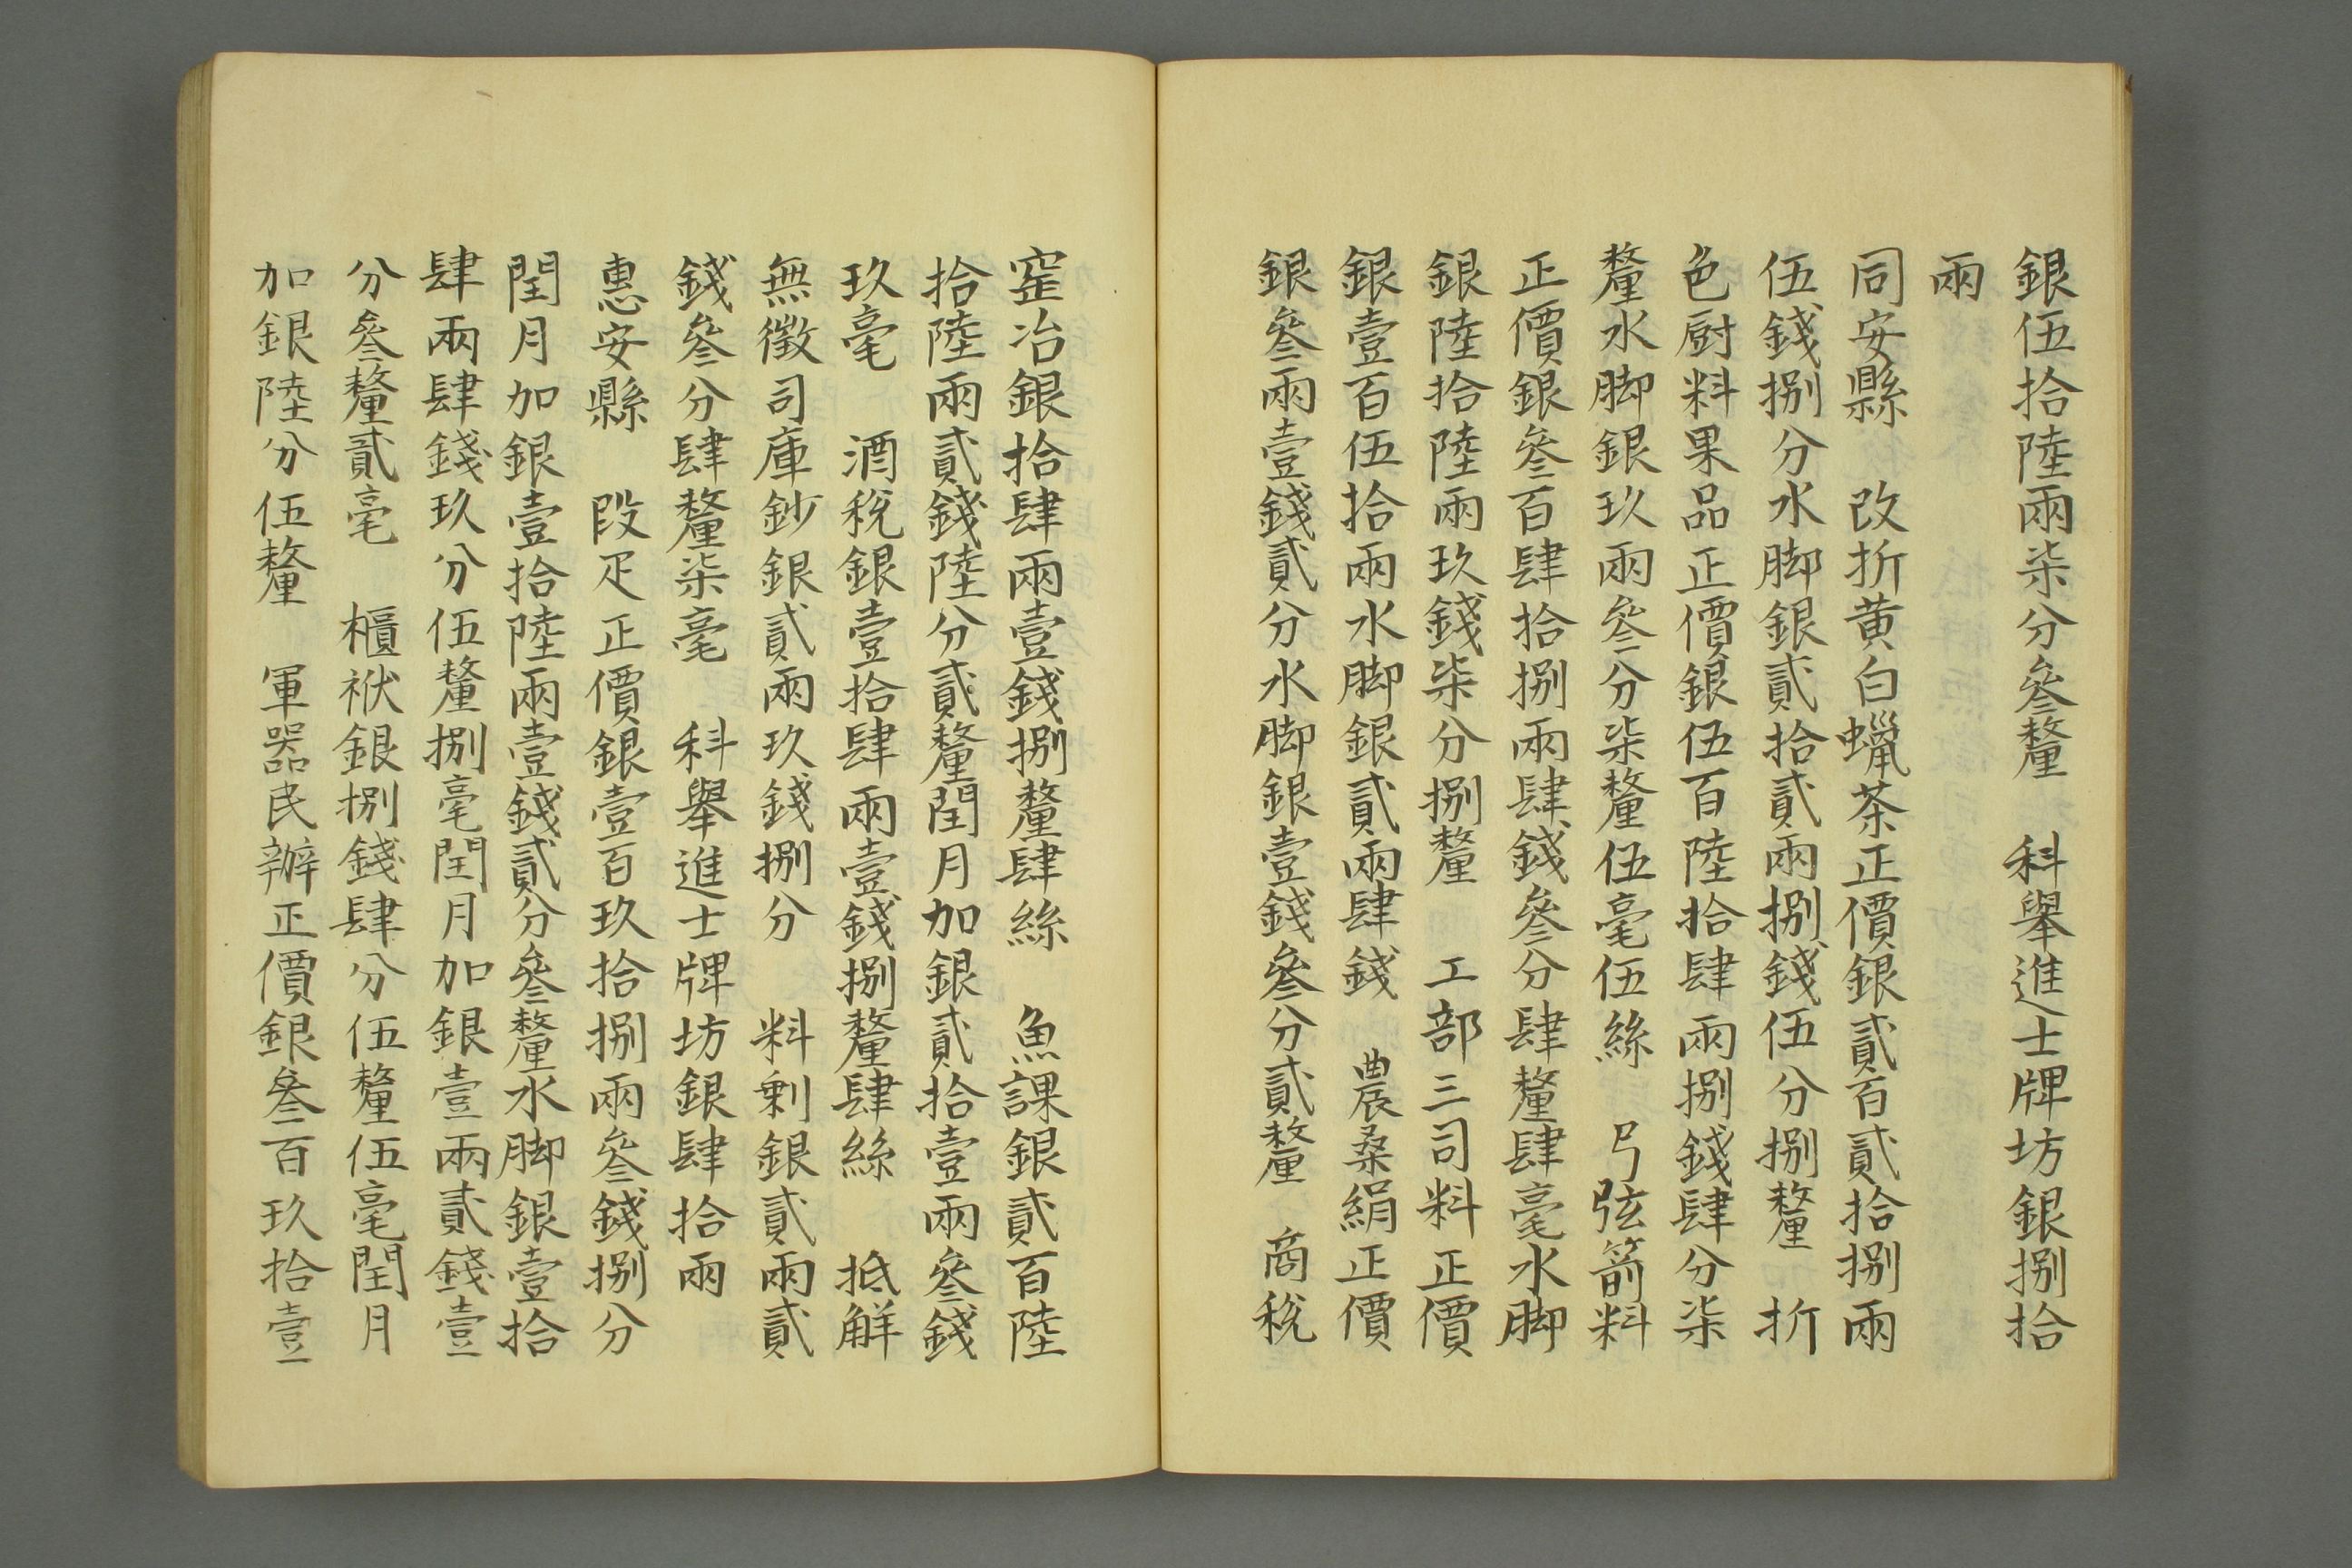 銀伍拾陸兩柒分叄釐　科舉進士牌坊銀捌拾
兩
同安縣　改折黄白蠟茶正價銀貳百貳拾捌兩
伍錢捌分水脚銀貳拾貳兩捌錢伍分捌釐　折
色厨料果品正價銀伍百陸拾肆兩捌錢肆分柒
釐水脚銀玖兩叄分柒釐伍毫伍絲　弓弦箭料
正價銀叄百肆拾捌兩肆錢叄分肆釐肆毫水脚
銀陸拾陸兩玖錢柒分捌釐　工部三司料正價
銀壹百伍拾兩水脚銀貳兩肆錢　農桑絹正價
銀叄兩壹錢貳分水脚銀壹錢叄分貳釐　商稅
窑冶銀拾肆兩壹錢捌釐肆絲　魚課銀貳百陸
拾陸兩貳錢陸分貳釐閏月加銀貳拾壹兩叄錢
玖毫　酒稅銀壹拾肆兩壹錢捌釐肆絲　抵解
無徵司庫鈔銀貳兩玖錢捌分　料剩銀貳兩貳
錢叄分肆釐柒毫　科舉進士牌坊銀肆拾兩
惠安縣　段疋正價銀壹百玖拾捌兩叄錢捌分
閏月加銀壹拾陸兩壹錢貳分叄釐水脚銀壹拾
肆兩肆錢玖分伍釐捌毫閏月加銀壹兩貳錢壹
分叄釐貳毫　櫃袱銀捌錢肆分伍釐伍毫閏月
加銀陸分伍釐　軍器民辦正價銀叄百玖拾壹